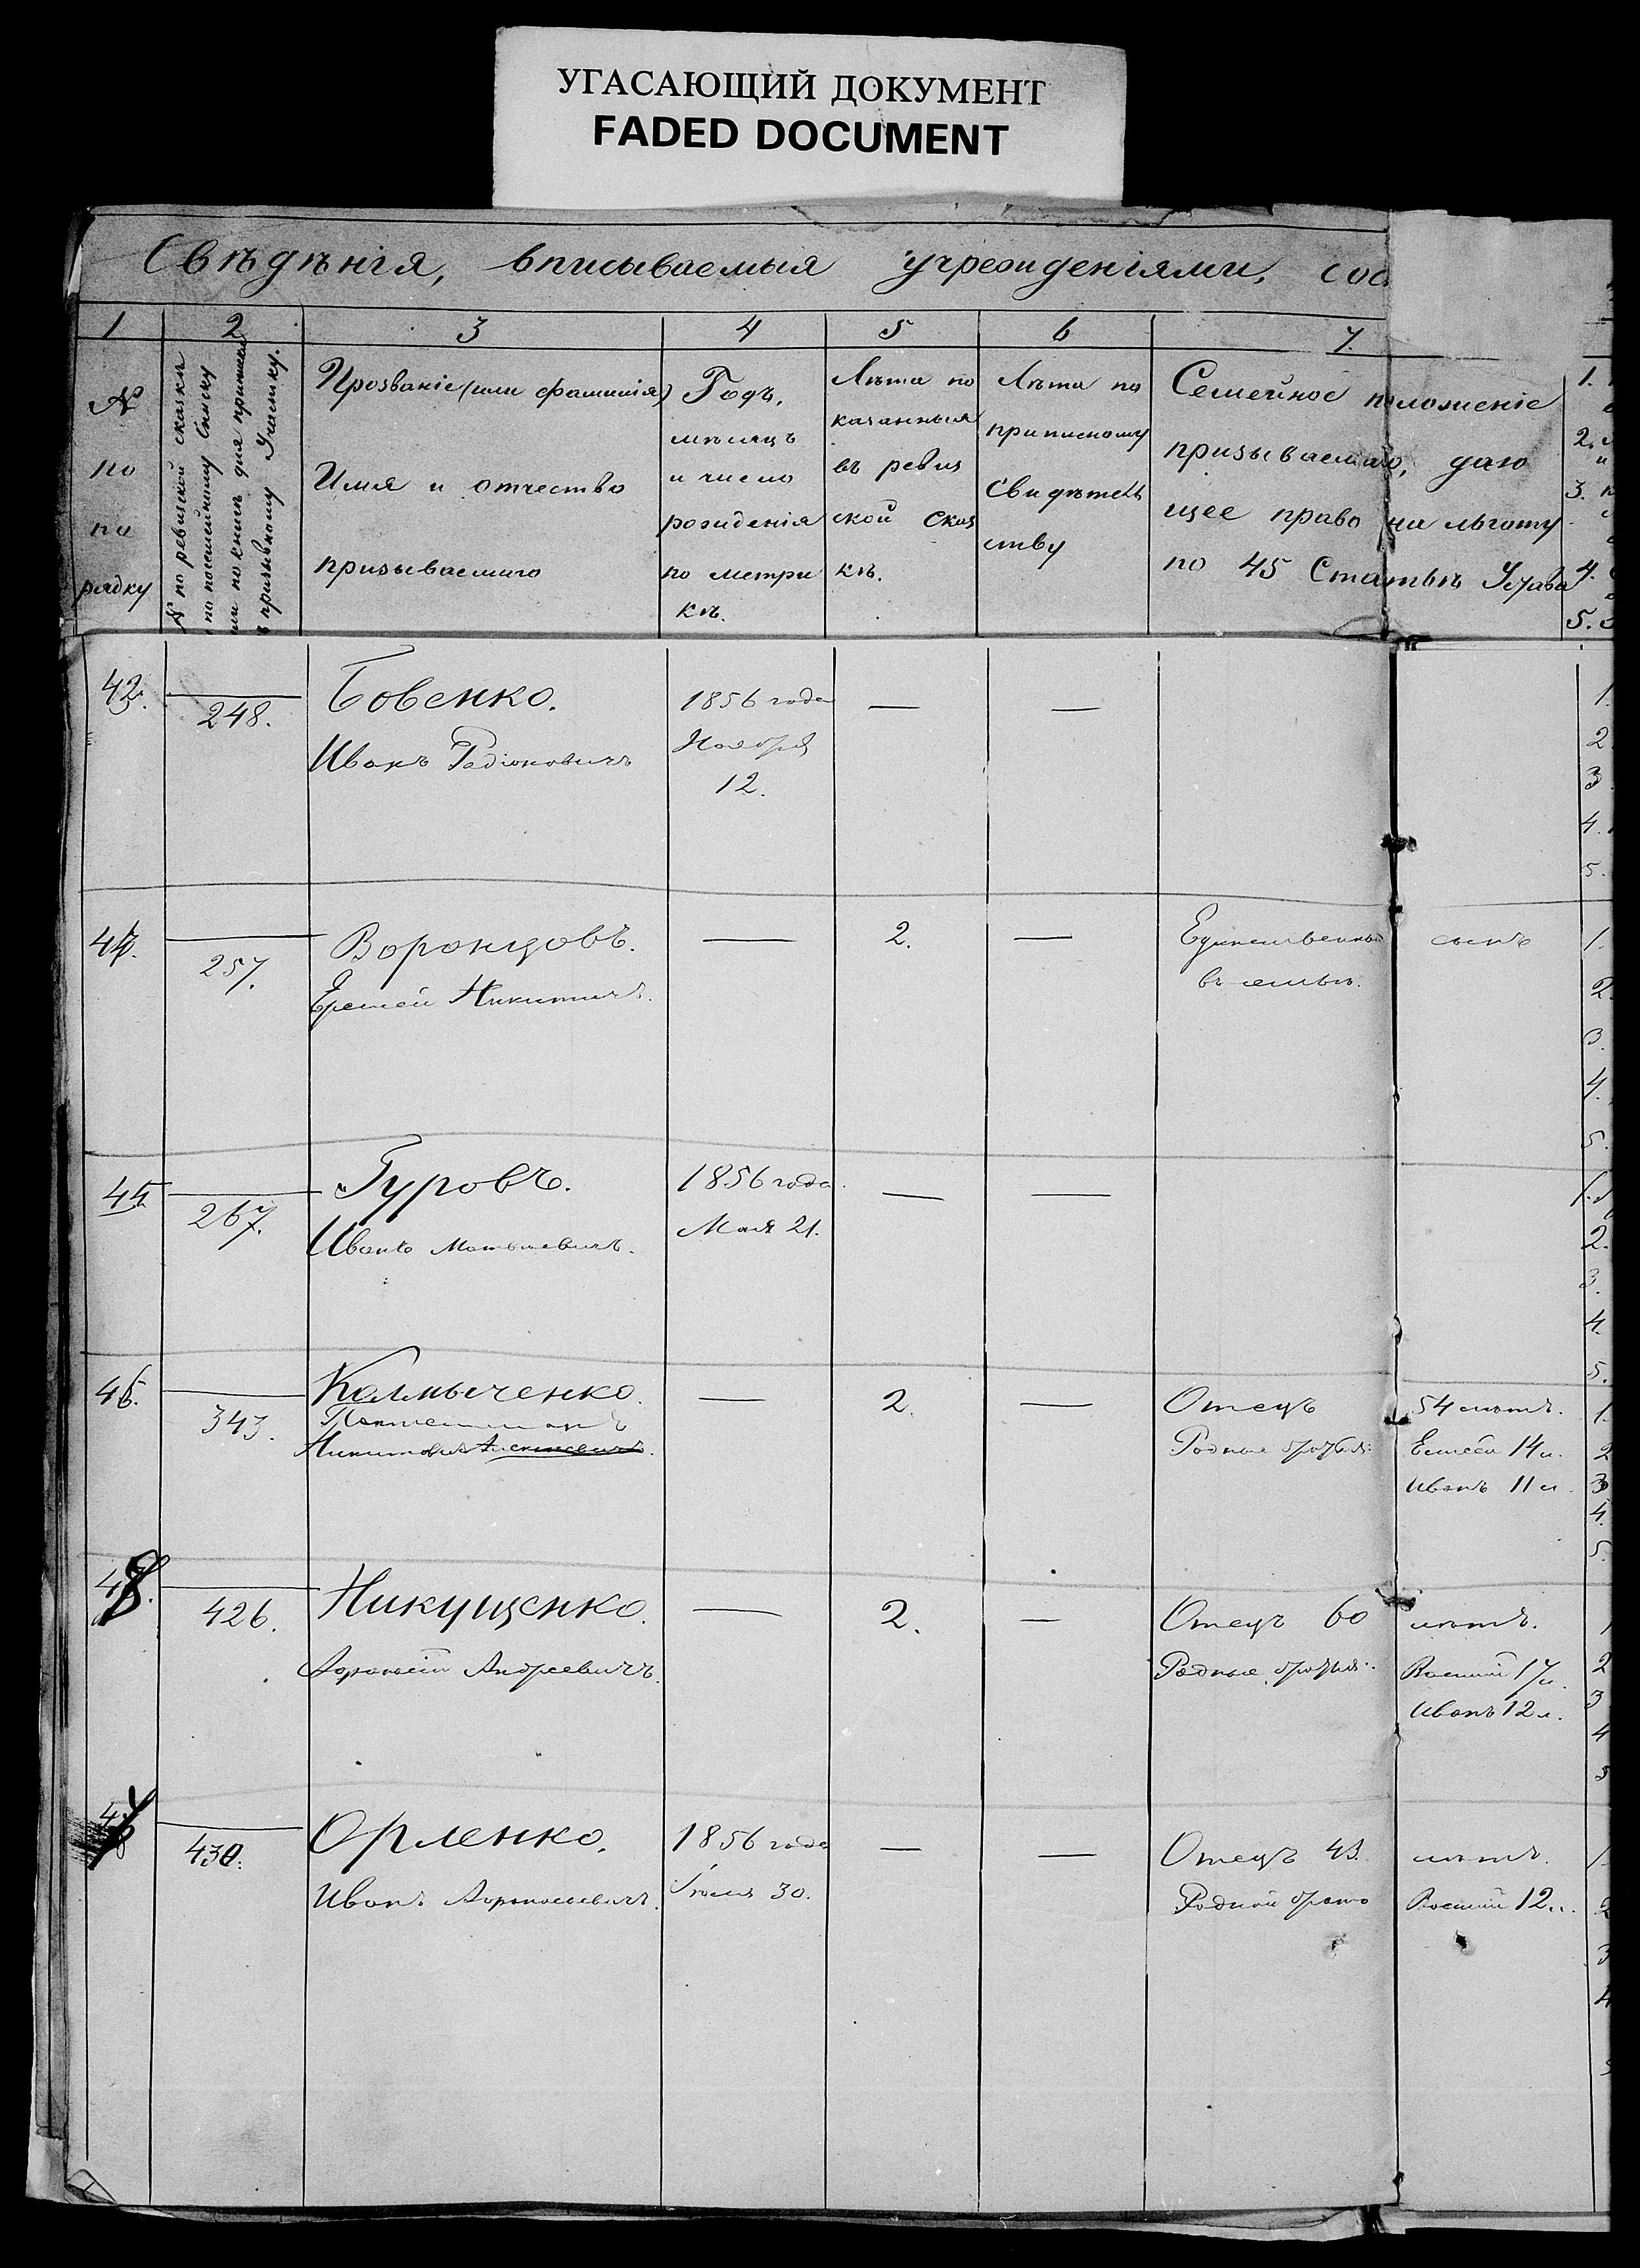 УГАСАЮЩИЙ ДОКУМЕНТ
FADED DOCUMENT
Свѣдѣнія, вписываемыя учрежденіями, сос
1 2 3 4 5 6 7.
№ по порядку
№ по ревизской сказкѣ
по посемейному списку
или по книгѣ для приписки
призывному Участку.
Прозваніе (или фамилія)
Имя и отчество
призываемаго
Годъ,
мѣсяцъ
и число
рожденія
по метри
кѣ.
Лѣта по
казанныя
въ ревиз
ской сказ
кѣ.
Лѣта по
приписному
свидѣтель
ству
Семейное положеніе
призываемаго, даю
щее право на льготу
по 45 Статьѣ Устава
1.
2.
3.
4.
5.
248.
Бовенко.
Иванъ Радіоновичъ
1856 года
Ноября
12.
— —
1.
2.
3.
4.
5.
257.
Воронцовъ.
Еремей Никитичъ.
— 2. —
Единственный сынъ
въ семьѣ.
1.
2.
3.
4.
5.
267.
Гуровъ.
Иванъ Матвѣевичъ.
1856 года
Мая 21.
— —
1.
2.
3.
4.
5.
46.
343.
Калмыченко.
Пантелимонъ
Никитовичъ
— 2. —
Отецъ 54 лѣтъ.
Родные братья: Елисей 14 л.
Иванъ 11 л.
1.
2
3
4.
5.
426.
Никущенко.
Афанасій Андреевичъ.
— 2. —
Отецъ 60 лѣтъ.
Родные братья: Василій 17 л.
Иванъ 12 л.
2
3
4
5
430.
Орленко.
Иванъ Афанасьевичъ.
1856 года
30.
— —
Отецъ 43. лѣтъ.
Родной братъ Василій 12 л.
1.
2
3
4